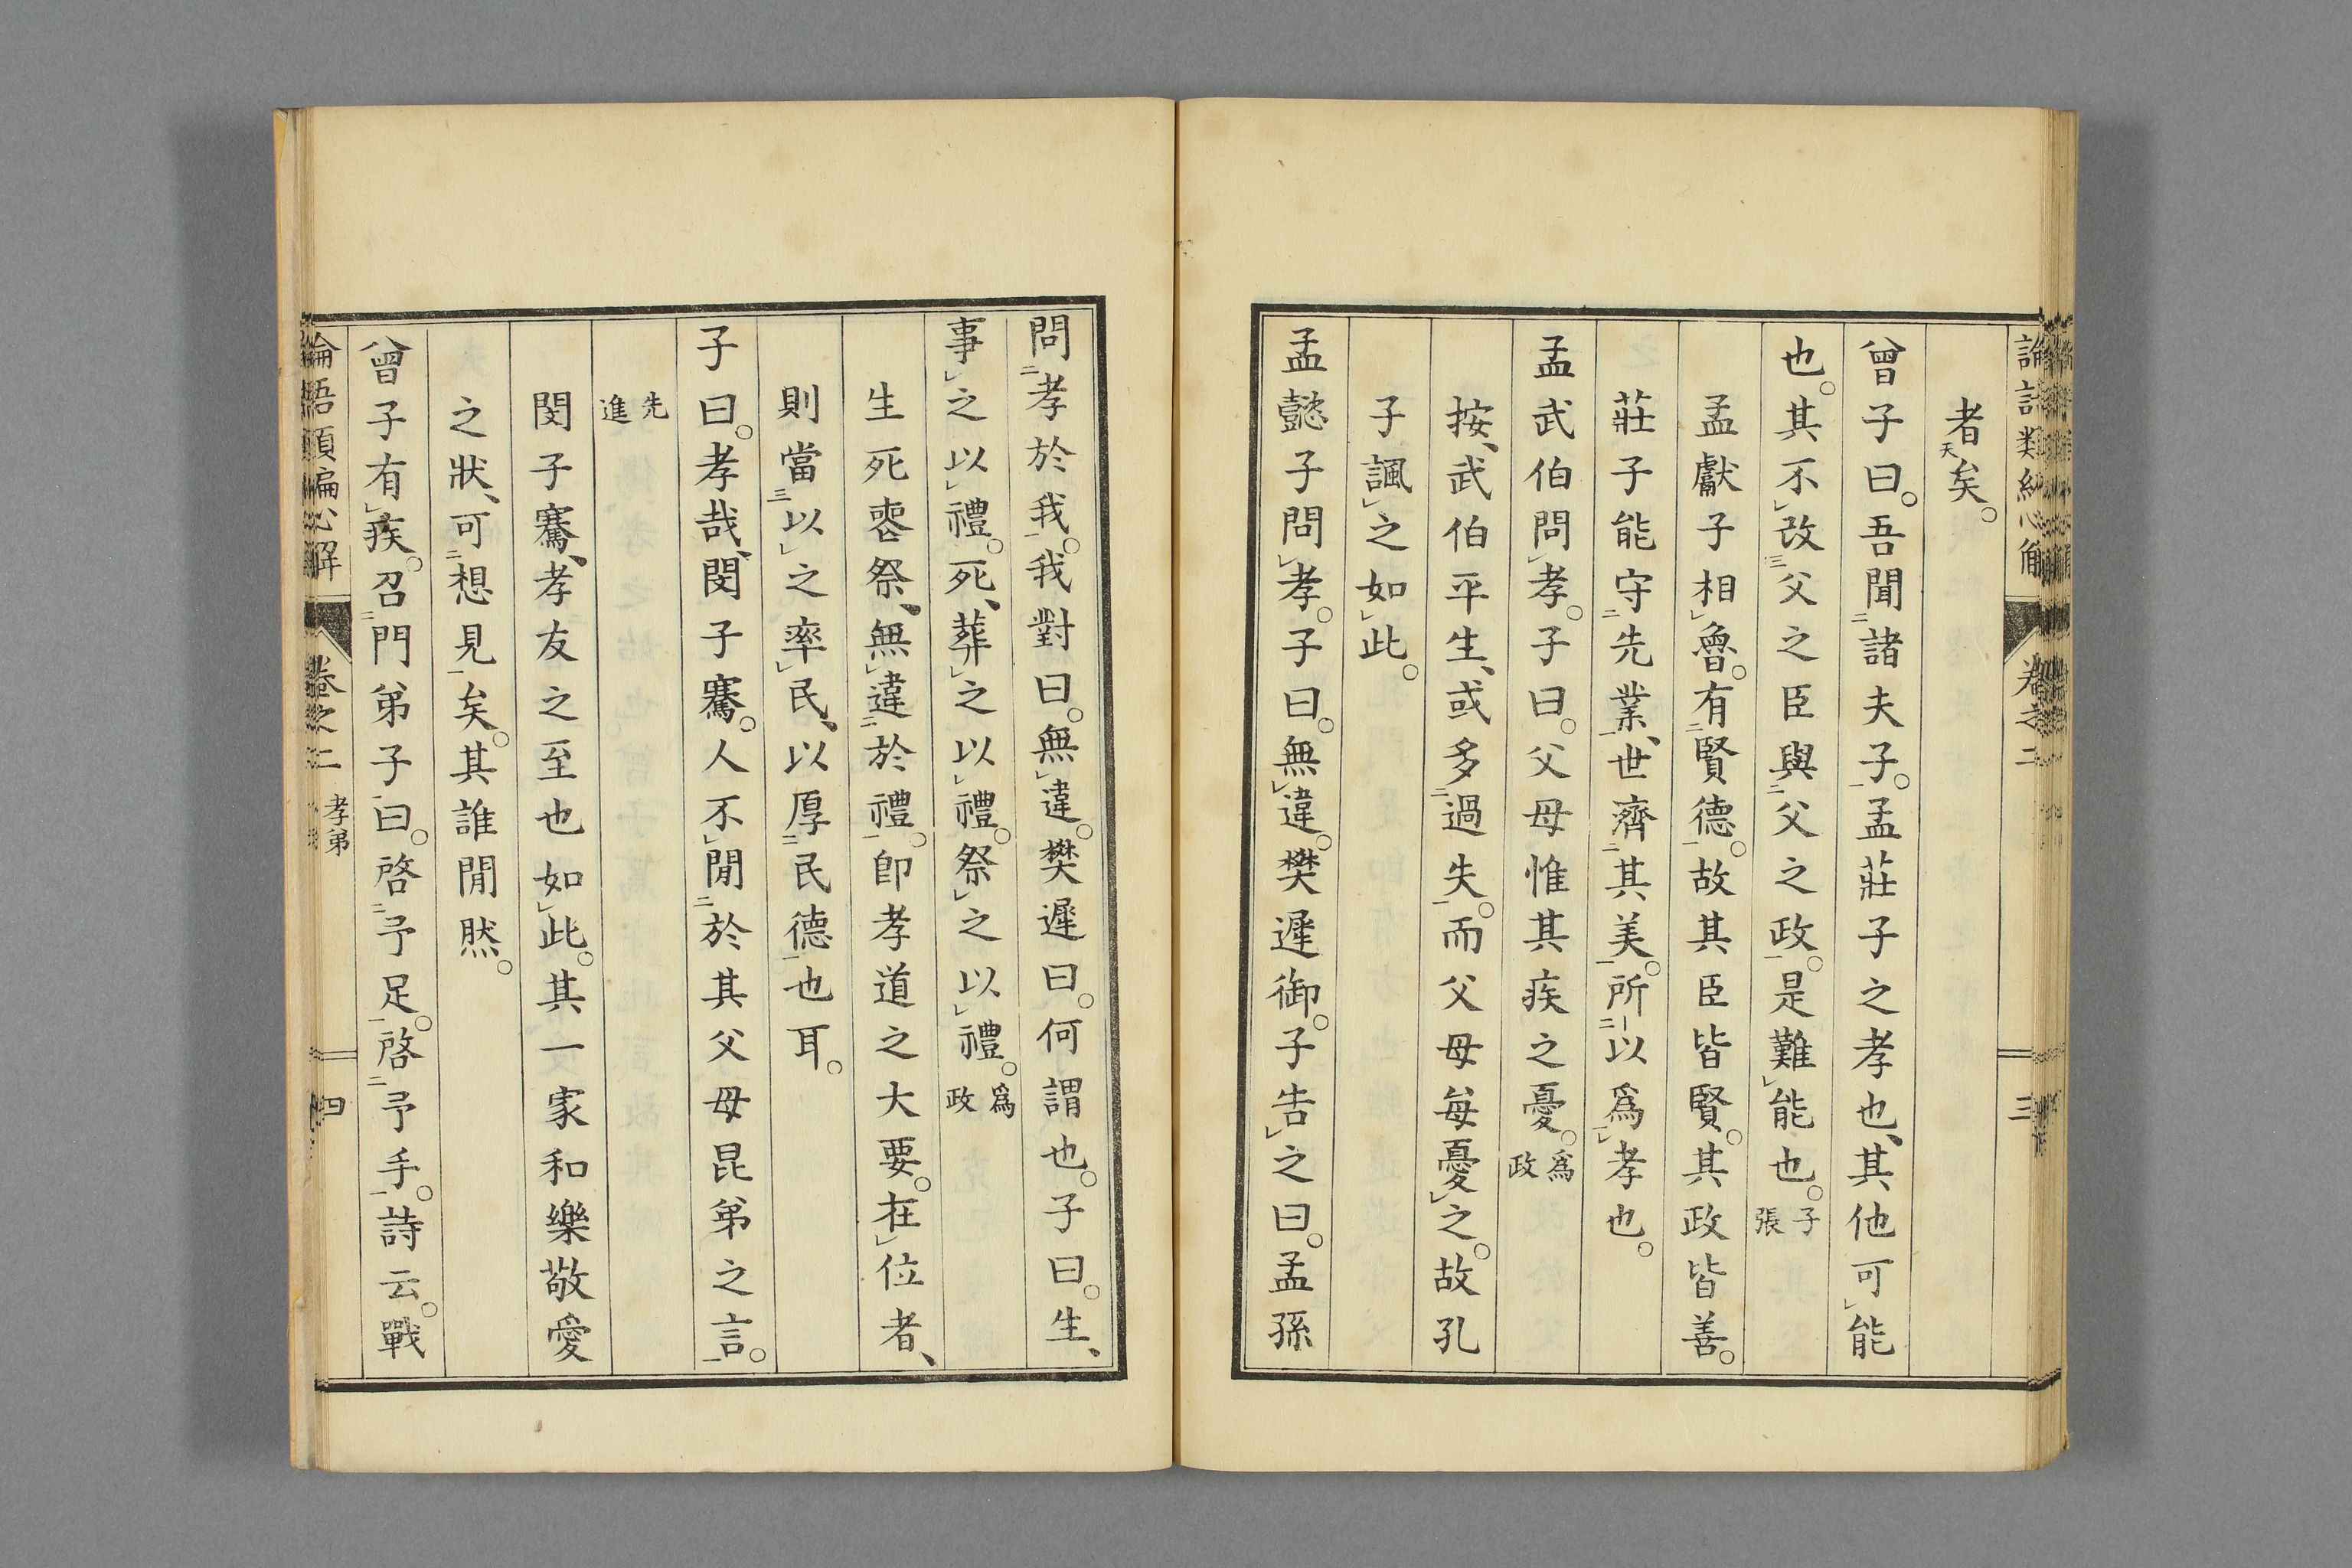 者矣。
曾子曰。吾聞二諸夫子一。孟莊子之孝也、其他可レ能
也。其不レ改三父之臣與二父之政一。是難レ能也。子張
孟獻子相レ魯。有二賢德一。故其臣皆賢。其政皆善。
莊子能守二先業一、世濟二其美一。所二-以爲一レ孝也。
孟武伯問レ孝。子曰。父母惟其疾之憂。爲政
按、武伯平生、或多二過失一。而父母每憂レ之。故孔
子諷レ之如レ此。
孟懿子問レ孝。子曰。無レ違。樊遲御。子告レ之曰。孟孫
卷之二
三
問二孝於我一。我對曰。無レ違。樊遲曰。何謂也。子曰。生、
事レ之以レ禮。死、葬レ之以レ禮。祭レ之以レ禮。爲政
生死喪祭、無レ違二於禮一。卽孝道之大要。在レ位者、
則當三以レ之率レ民、以厚二民德一也耳。
子曰。孝哉、閔子騫。人不レ間二於其父母昆弟之言一。
先進
閔子騫、孝友之至也如レ此。其一家和樂敬愛
之狀、可二想見一矣。其誰間然。
曾子有レ疾。召二門弟子一曰。啓二予足一。啓二予手一。詩云。戰
論語類編心解
卷之二
孝弟
四